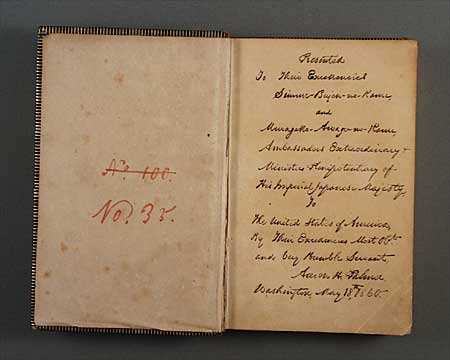 No. 100.
No. 35.
Presented
To Their Excellencies
Simme-Bujen-no-Kami
and
Muragake-Awage-no-Kami
Ambassadors Extraordinary &
Ministers Plenipotentiary of
His Imperial Japanese Majesty,
To
The United States of America,
By Their Excellencies Most Obt.
and very Humble Servant,
Aaron H. Palmer
Washington, May 18th 1860.